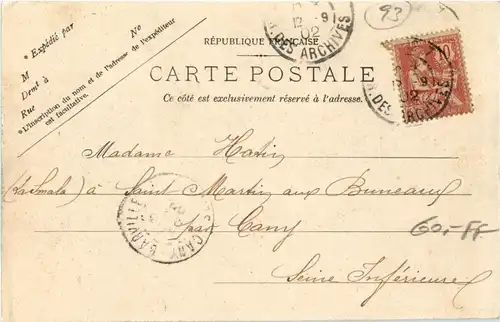 93
12 9
02
R. DES ARCHIVES
N°
* Expédié par
M
Demt à
Rue
*L'inscription du nom et de l'adresse de l'expéditeur
est facultative.
RÉPUBLIQUE FRANÇAISE
CARTE POSTALE
Ce côté est exclusivement réservé à l'adresse.
10
02
R. DES ARCHIVES
Madame Hatin
(La Smala) à Saint Martin aux Buneaux
par Cany
Seine Inférieure
CANY BARVILLE
60.- FF